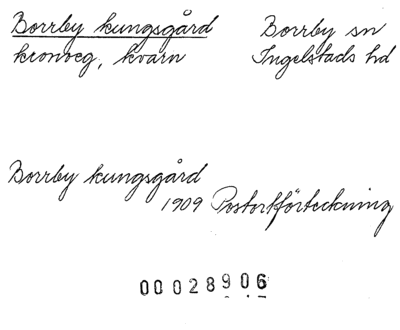 Borrby kungsgård
Borrby sn
kronoeg, kvarn
Ingelstads hd
Borrby kungsgård
1909 Postortförteckning
00028906